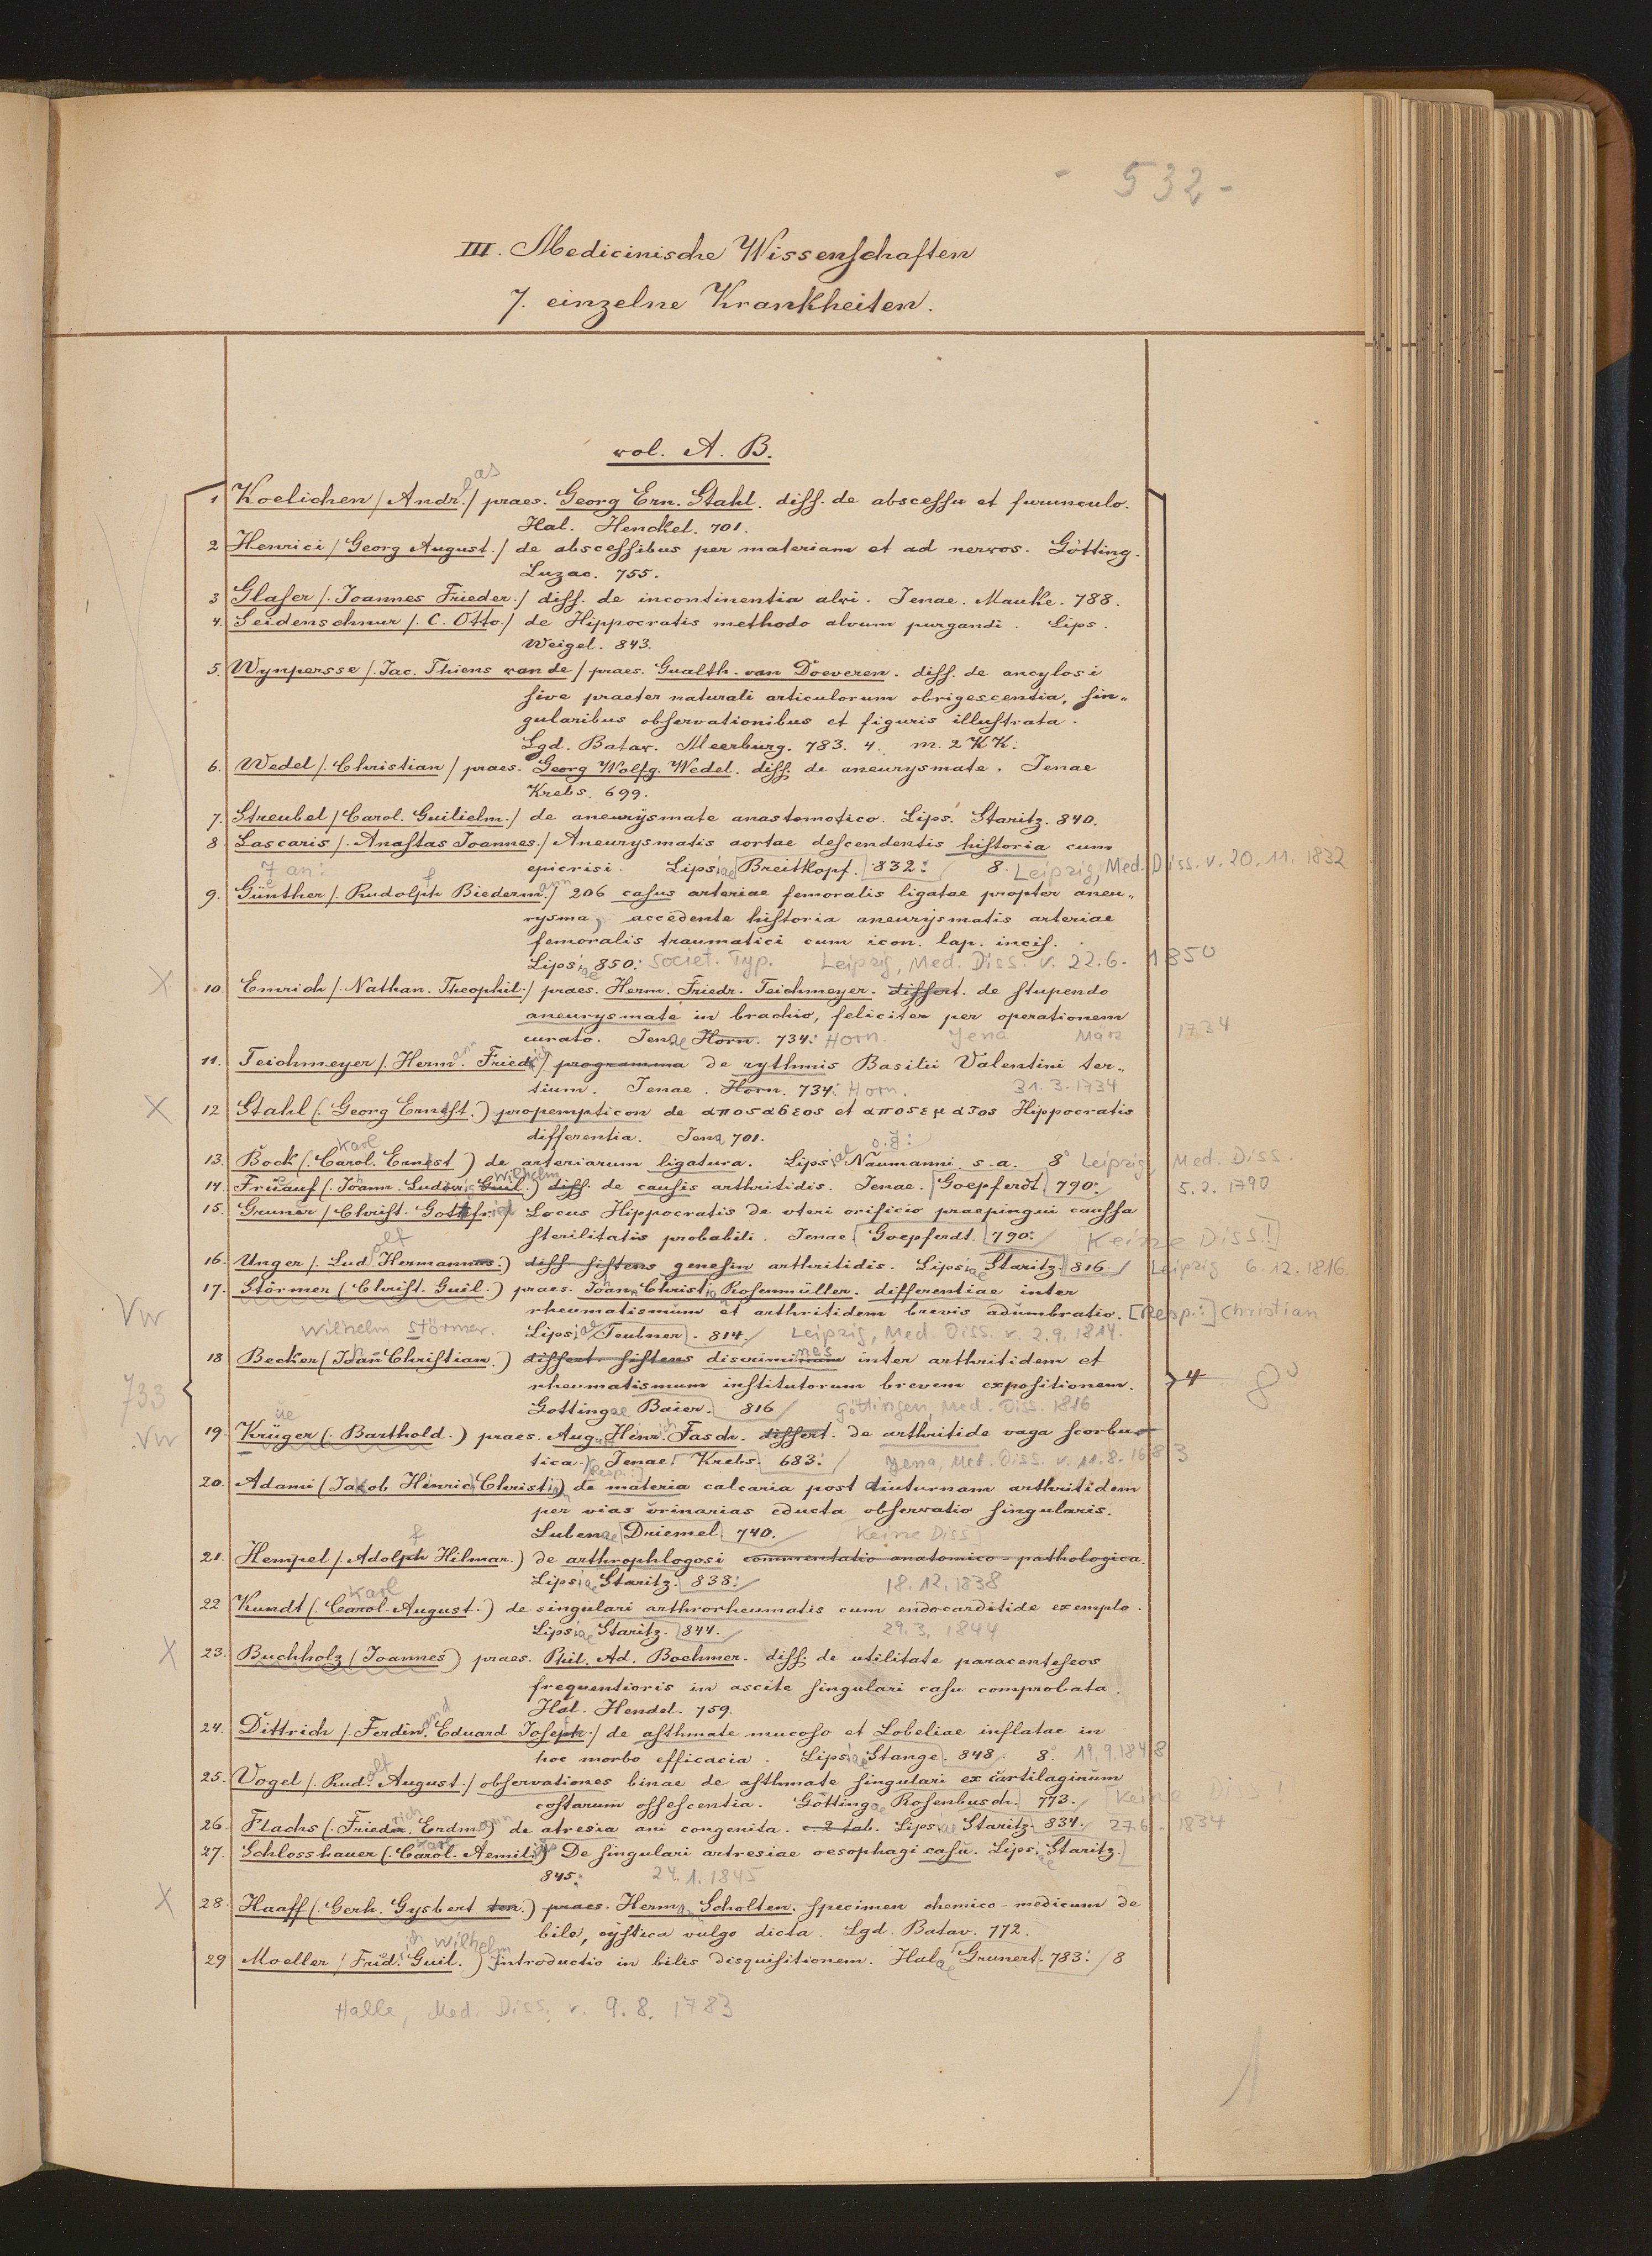 - 532 -
III. Medicinische Wissenschaften
7. einzelne Krankheiten.
vol. A. B.
1 Koelichen /Andr. eas/ praes. Georg Ern. Stahl. diss. de abscessu et furunculo.
Hal. Henckel. 701.
2 Henrici /Georg August./ de abscessibus per materiam et ad nervos. Götting.
Luzac. 755.
3 Glaser /. Joannes Frieder./ diss. de incontinentia alvi. Jenae. Mauke. 788.
4. Seidenschnur /. C. Otto./ de Hippocratis methodo alvum purgandi. Lips.
Weigel. 843.
5. Wynpersse /. Jac. Thiens van de / praes. Gualth. van Doeveren. diss. de ancylosi
sive praeter naturali articulorum obrigescentia, sin„
gularibus observationibus et figuris illustrata.
Lgd. Batav. Meerburg. 783. 4. m. 2 KK.
6. Wedel /. Christian / praes. Georg Wolfg. Wedel. diss. de aneurysmate. Jenae
Krebs. 699.
7. Streubel /Carol. Guilielm./ de aneurysmate anastomotico. Lips. Staritz. 840.
8 Lascaris /. Anastas Joannes./ Aneurysmatis aortae descendentis historia cum
epicrisi. Lipsiae Breitkopf. 832. 8. Leipzig, Med. Diss. v. 20.11.1832
9. Günther /. Rudolph f Biederm. ann/ 206 casus arteriae femoralis ligatae propter aneu„
rysma, accedente historia aneurysmatis arteriae
femoralis traumatici cum icon. lap. incis.
Lipsiae 850. Societ. Typ. Leipzig, Med. Diss. v. 22.6.1850
X 10 Emrich /. Nathan. Theophil./ praes. Herm. Friedr. Teichmeyer. dissert. de stupendo
aneurysmate in brachio, feliciter per operationem
curato. Jenae Horn. 734. Horn. Jena März 1734
11. Teichmeyer /. Herm. ann Friedrich/ programma de rythmis Basilii Valentini ter„
tium. Jenae. Horn. 734. Horn. 31.3.1734
X 12 Stahl (. Georg Ernst.) propempticon de αποσαβεος et αποσεματος Hippocratis
differentia. Jena 701.
13. Bock (. Carol. Karl Ernst) de arteriarum ligatura. Lipsiae Naumanni s. a. o. J. 8° Leipzig, Med. Diss.
14. Früauf (. Joann. Ludov. Guil. Wilhelm) diss. de causis arthritidis. Jenae. Goepferdt 790. 5.2.1790
15. Gruner / Christ. Gottfr. / Locus Hippocratis de uteri orificio praepingui caussa
sterilitatis probabili. Jenae Goepferdt. 790. [Keine Diss!]
16. Unger /. Lud olf Hermannus.) diss sistens genesin arthritidis. Lipsiae Staritz. 816. Leipzig 6.12.1816.
17. Störmer (. Christ. Guil.) praes. Joan. Christ. Rosenmüller. differentiae inter
rheumatismum et arthritidem brevis adumbratio. [Resp.:] Christian
Vw Wilhelm Störmer. Lipsiae Teubner. 814. Leipzig, Med. Diss. v. 2.9.1814.
18 Becker (Johan Christian.) dissert. sistens discriminum nes inter arthritidem et
rheumatismum institutorum brevem expositionem. 4 8°
Gottingae Baier. 816. Göttingen, Med. Diss. 1816
733
Vw 19. Krüger üe (. Barthold.) praes. August Henrich. Fasch. dissert. de arthritide vaga scorbu
tica. Jenae. Krebs. 683. Jena, Med. Diss. v. 11.8.1683
20. Adami (Jakob Henric. Christi.) [Resp.:] de materia calcaria post diuturnam arthritidem
per vias urinarias educta observatio singularis.
Lubenae Driemel. 740. [Keine Diss]
21. Hempel /. Adolph f Hilmar.) de arthrophlogosi commentatio anatomico-pathologica.
Lipsiae Staritz. 838. 18.12.1838
22 Kundt (. Carol. Karl August.) de singulari arthrorheumatis cum endocarditide exemplo.
Lipsiae Staritz. 844. 29.3.1844
X 23. Buchholz (Joannes) praes. Phil. Ad. Boehmer. diss. de utilitate paracenteseos
frequentioris in ascite singulari casu comprobata.
Hal. Hendel. 759.
24. Dittrich /. Ferdin. and Eduard Joseph f./ de asthmate mucoso et Lobeliae inflatae in
hoc morbo efficacia. Lipsiae Stange. 848. 8°. 19.9.1848
25. Vogel /. Rud. olf August./ observationes binae de asthmate singulari ex cartilaginum
costarum ossescentia. Göttingae Rosenbusch. 773. [Keine Diss!]
26. Flachs (. Frieder. rich Erdm. ann) de atresia ani congenita. c. 2 tab. Lipsiae Staritz. 834. 27.6.1834
27. Schlosshauer (. Carol. Karl Aemilius) De singulari artresiae oesophagi casu. Lipsiae Staritz.
845. 24.1.1845
X 28. Haaff (. Gerh. Gysbert ten.) praes. Herm. Scholten. specimen chemico-medicum de
bile, cystica vulgo dicta. Lgd. Batav. 772.
29 Moeller / Frid. ich Guil. Wilhelm) introductio in bilis disquisitionem. Halae Grunert. 783. 8
Halle, Med. Diss. v. 9.8.1783
1